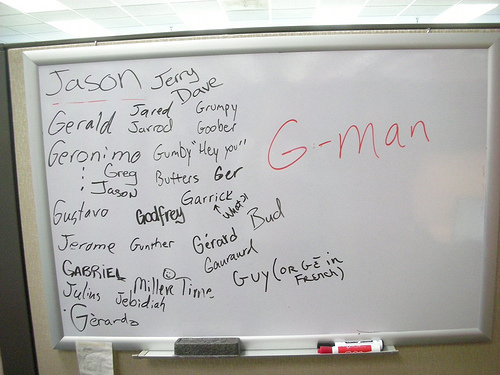 Jason Jerry
Dave
Gerald Jared Grumpy
Jarrod Goober
G-man
Geronimo Gumby "Hey you"
Greg Butters Ger
Jason
Garrick
Gustavo Godfrey What?! Bud
Jerome Gunther Gérard
Gauraurd
GABRiEL Guy (OR GÈ in
French)
Julius Miller Time
Jebidiah
Gerardo